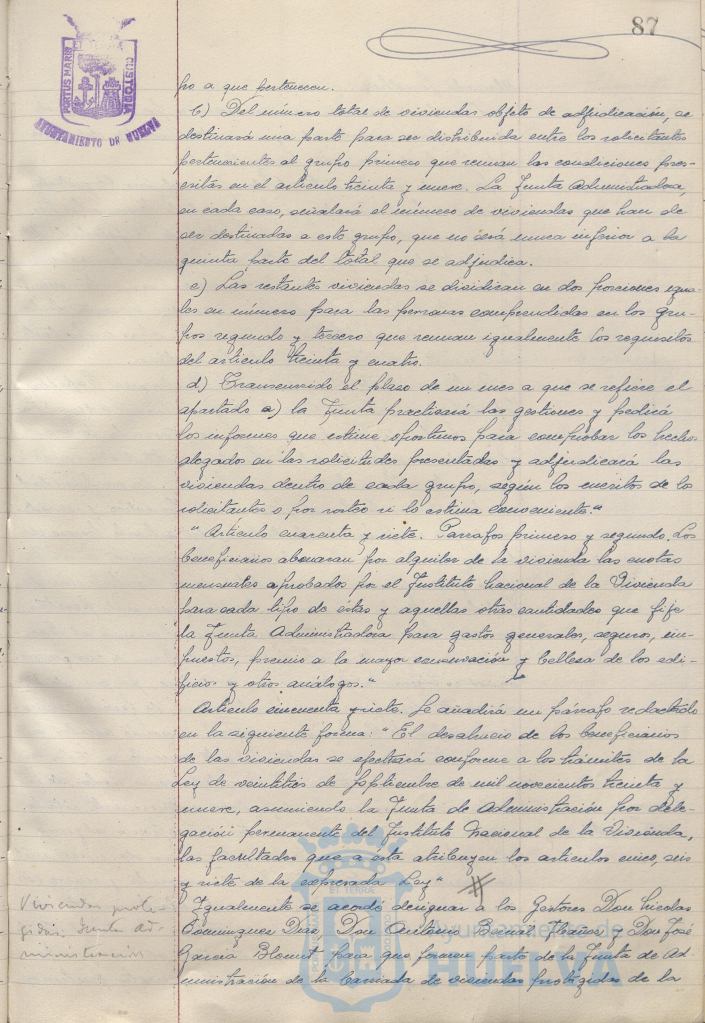 87
PORTUS MARIS
CUSTODIA
AYUNTAMIENTO DE HUELVA
po a que pertenecen.
b) Del número total de viviendas objeto de adjudicación, se
destinará una parte para ser distribuida entre los solicitantes
pertenecientes al grupo primero que reunan las condiciones pres-
critas en el articulo treinta y nueve. La Junta Administradora,
en cada caso, señalará el número de viviendas que han de
ser destinadas a este grupo, que no será nunca inferior a la
quinta parte del total que se adjudica.
c) Las restantes viviendas se dividiran en dos porciones igua-
les en número para las personas comprendidas en los gru-
pos segundo y tercero que reunan igualmente los requisitos
del articulo treinta y cuatro.
d) Transcurrido el plazo de un mes a que se refiere el
apartado a) la Junta practicará las gestiones y pedirá
los informes que estime oportunos para comprobar los hechos
alegados en las solicitudes presentadas y adjudicará las
viviendas dentro de cada grupo, según los meritos de los
solicitantes o por sorteo si lo estima conveniente."
"Artículo cuarenta y siete. Parrafos primero y segundo. Los
beneficiarios abonaran por alquiler de la vivienda las cuotas
mensuales aprobadas por el Instituto Nacional de la Vivienda
para cada tipo de estas y aquellas otras cantidades que fije
la Junta Administradora para gastos generales, seguros, im-
puestos, premio a la mayor conservación y belleza de los edi-
ficios y otros análogos."
Artículo cincuenta y siete. Se añadirá un párrafo redactado
en la siguiente forma: "El desahucio de los beneficiarios
de las viviendas se efectuará conforme a los trámites de la
Ley de veintitrés de Septiembre de mil novecientos treinta y
nueve, asumiendo la Junta de Administración por dele-
gación permanente del Instituto Nacional de la Vivienda,
las facultades que a ésta atribuyen los articulos cinco, seis
y siete de la expresada Ley"
Viviendas prote-
gidas. Junta Ad-
ministración
Igualmente se acordó designar a los Gestores Don Nicolas
Dominguez Diaz, Don Antonio Bernal Ibañez y Don José
Garcia Blount para que formen parte de la Junta de Ad-
ministración de la Barriada de viviendas protegidas de la
Ayuntamiento de
HUELVA